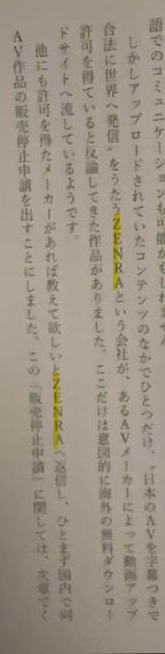 語でのコミュニケーションも可能かもしれません
しかしアップロードされていたコンテンツのなかでひとつだけ、〝日本のAVを字幕つきで
合法に世界へ発信〟をうたうZENRAという会社が、あるAVメーカーによって動画アップ
許可を得ていると反論してきた作品がありました。ここだけは意図的に海外の無料ダウンロー
ドサイトへ流しているようです。
他にも許可を得たメーカーがあれば教えて欲しいとZENRAへ返信し、ひとまず国内で同
AV作品の販売停止申請を出すことにしました。この「販売停止申請」に関しては、次章でく